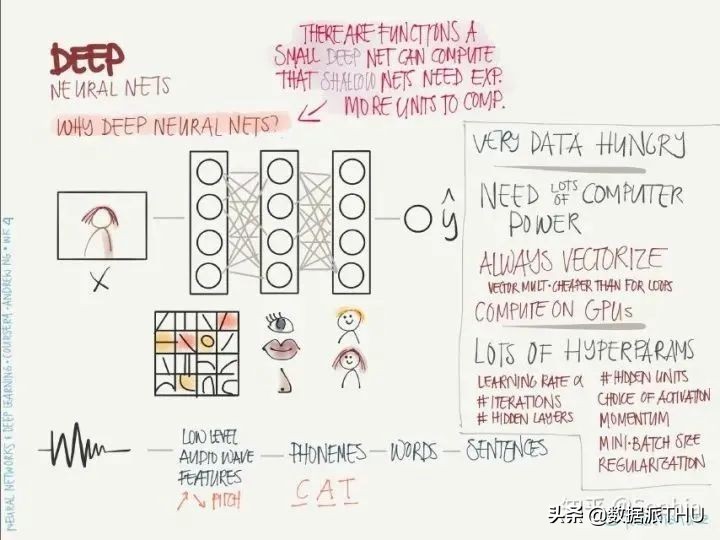 DEEP
NEURAL NETS
WHY DEEP NEURAL NETS?
THERE ARE FUNCTIONS A
SMALL DEEP NET CAN COMPUTE
THAT SHALLOW NETS NEED EXP.
MORE UNITS TO COMP.
X
ŷ
LOW LEVEL
AUDIO WAVE
FEATURES
↗↘ PITCH
PHONEMES
C A T
WORDS
SENTENCES
VERY DATA HUNGRY
NEED LOTS OF COMPUTER
POWER
ALWAYS VECTORIZE
VECTOR MULT. CHEAPER THAN FOR LOOPS
COMPUTE ON GPUs
LOTS OF HYPERPARAMS
LEARNING RATE α
# ITERATIONS
# HIDDEN LAYERS
# HIDDEN UNITS
CHOICE OF ACTIVATION
MOMENTUM
MINI-BATCH SIZE
REGULARIZATION
NEURAL NETWORKS & DEEP LEARNING · COURSERA · ANDREW NG · WK 4
知乎
头条 @数据派THU